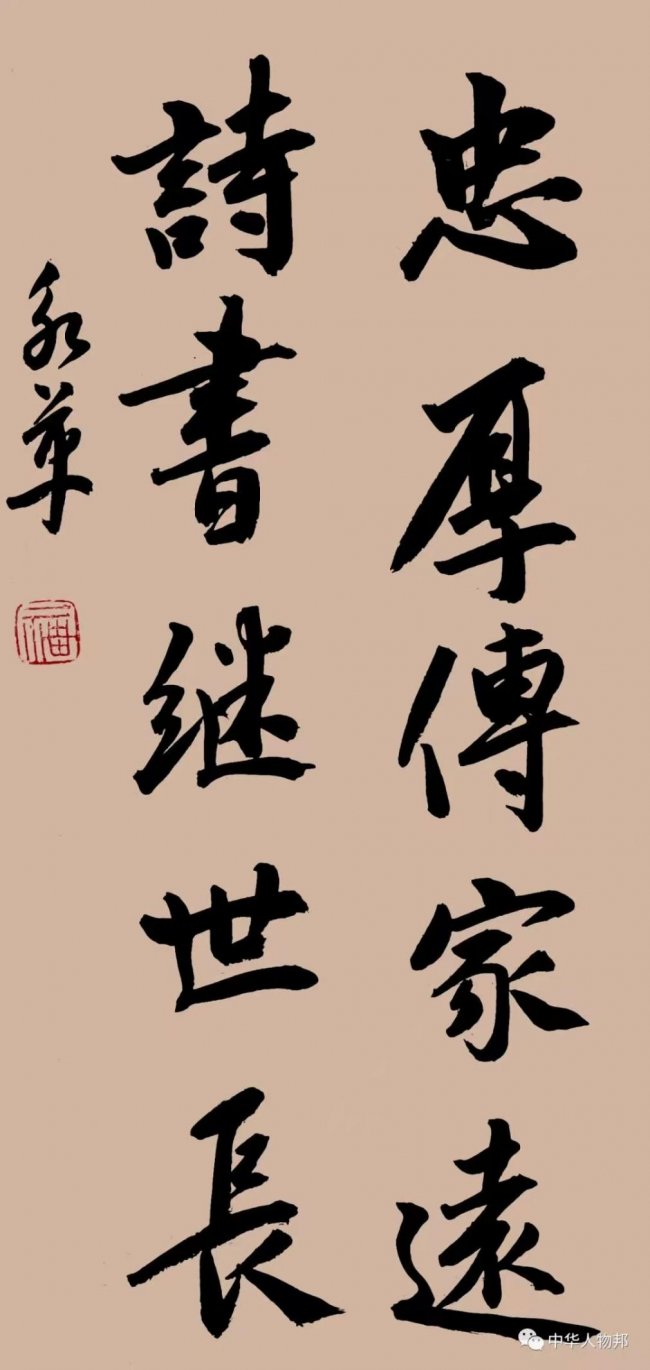 忠厚傳家遠
詩書继世長
永革
福
中华人物邦